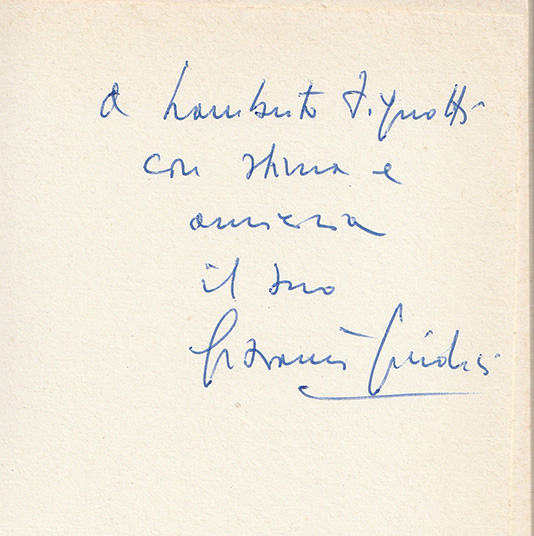 a Lamberto Pignotti
con stima e
amicizia
il suo
Giovanni Giudici